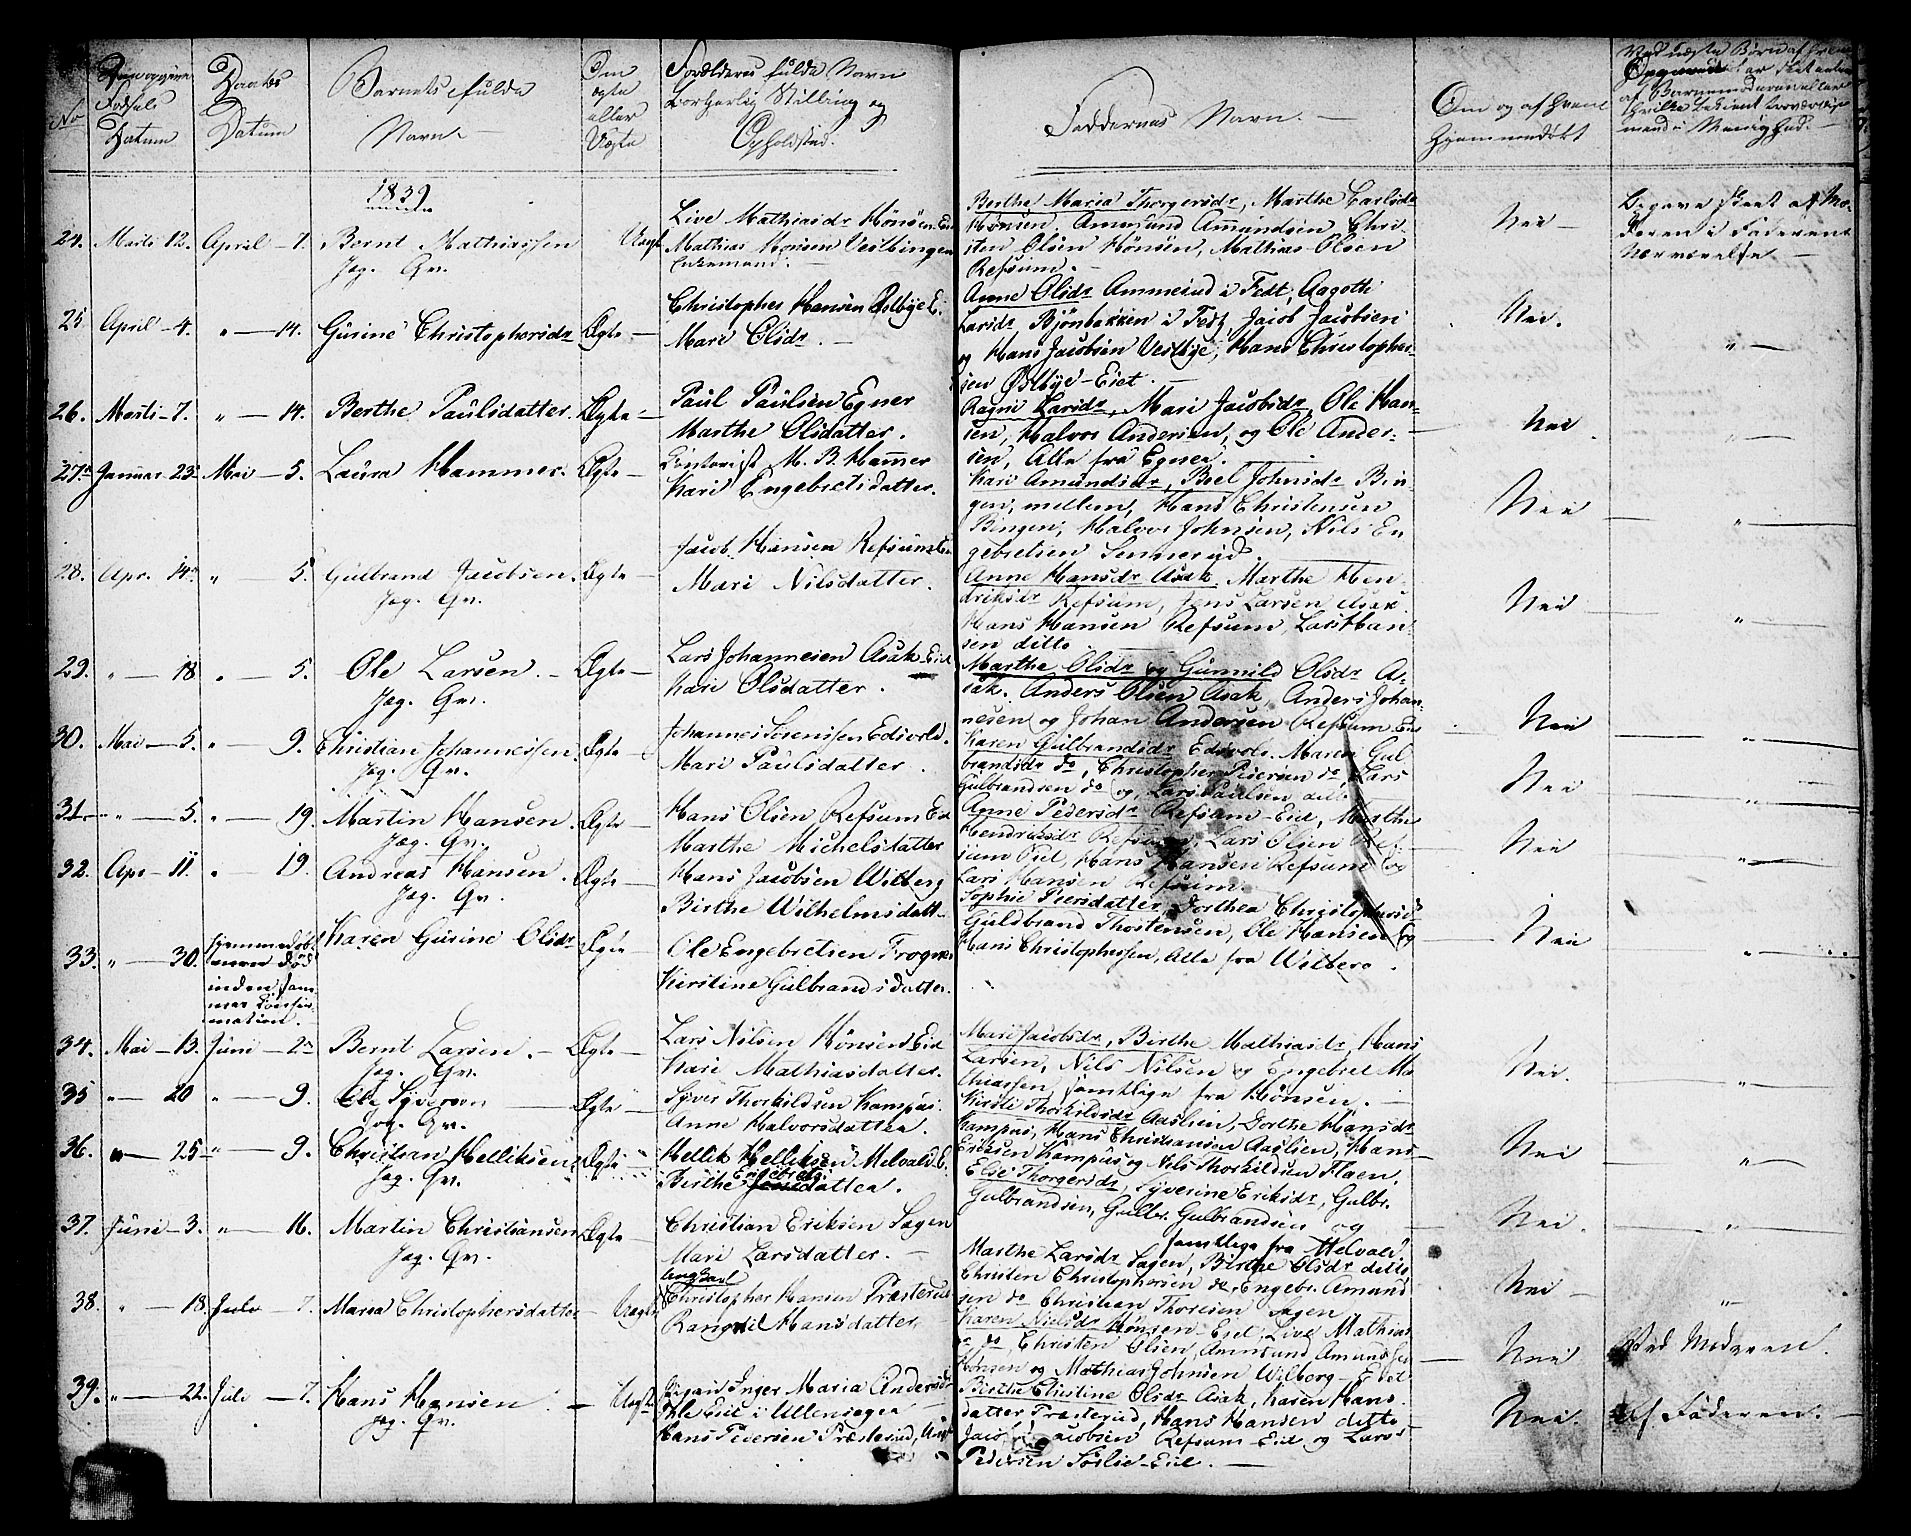 No
Fødsels
Datum
Daabs
Datum
Barnets fulde
Navn.
Om
ægte
eller
Uægte
Forældrenes fulde Navn
borgerlig Stilling og
Opholdsted.
Faddernes Navn.
Om og af hvem
hjemmedøbt
1839
24. Marti 12. April 7. Bernt Mathiassen
Jag. Gv.
Uægt
Live Mathiasdr Hønsen Eie
Mathias
Enkemand.
Berthe Maria Thorgersdr, Marthe Carlsdr
Hønsen, Ammund Amundsen, Chri-
sten Olsen Hønsen, Mathias Olsen
Refsum.
Nei
skeet af Mo-
deren i Faderens
Nærværelse
25. April 4. " 14. Gurine Christophersdr Ægte
Christopher Hansen Østbye E.
Mari Olsdr.
Anne Olsdr i Fedt, Aagothe
Larsdr, Bjønbakken i Fedt, Jacob Jacobsen
og Hans Jacobsen Vestbye, Hans Christopher-
sen Østbye-Eiet.
Nei. "
26. Marti 7. " 14. Berthe Paulsdatter. Ægte
Paul Paulsen Egner
Marthe Olsdatter.
Ragni Larsdr, Mari Jacobsdr, Ole Han-
sen, Halvor Andersen, og Ole Ander-
sen, Alle fra Egner.
Nei "
27. Januar 23 Mai 5. Laura Hammer. Ægte
M. B. Hammer
Kari Engebretsdatter.
Kari Amundsdr, Beel Johnsdr Bin-
gen, mellem, Hans Christensen
Bingen, Halvor Johnsen, Nils En-
gebretsen Sennerud.
Nei "
28. Apr. 14 " 5. Gulbrand Jacobsen. Ægte
Jag. Gv.
Jacob Hansen
Mari Nilsdatter.
Anne Hansdr Asak, Marthe Hen-
driksdr Refsum, Jens Larsen Asak.
Hans Hansen Refsum, Lars Han-
sen ditto
Nei "
29. " 18 " 5. Ole Larsen. Ægte
Jag. Gv.
Lars Johannesen Asak-Eiet
Kari Olsdatter.
Marthe Olsdr og Gunnild Olsdr A-
sak. Anders Olsen Asak, Anders Johan-
nesen og Johan Andersen Refsum Eie
Nei "
30. Mai 5. " 9. Christian Johannessen. Ægte
Jag. Gv.
Johannes Sørensen Edsvold.
Mari Paulsdatter.
Karen Gulbrandsdr Maren Gul
brandsdr do, Christopher Pedersen do, Lars
Gulbrandsen do og Lars Paulsen ditto
Nei "
31. " 5. " 19. Martin Hansen. Ægte
Jag. Gv.
Hans Olsen Refsum Eie
Marthe Michelsdatter
Anne Pedersdr Refsum-Eiet, Marthe
Hendriksdr Refsum, Lars Olsen Ref-
sum Eiet, Hans Hansen Refsum og
Lars Hansen Refsum.
Nei "
32. Apr 11. " 19. Andreas Hansen. Ægte
Jag. Gv.
Hans Jacobsen Wilberg
Birthe Wilhelmsdatt-
Sophie Peersdatter, Dorthea Christophersd
Guldbrand Thorstensen, Ole Hansen og
Hans Christophersen, Alle fra Wilberg.
Nei "
33. " 30. hjemmedøbt
men død
inden
Karen Gurine Olsdr Ægte
Ole Engebretsen Frogner
Kirstine Gulbrandsdatter.
34. Mai 13. Juni 2 Bernt Larsen. Ægte
Jag. Gv.
Lars Nilsen Hønsen Eie
Kari Mathiasdatter.
Mari Jacobsdr, Birthe Mathiasdr, Hans
Larsen, Nils Nilsen og Engebret Ma
thiassen, samtlige fra Hønsen.
Nei. "
35 " 20 " 9. Ole Syversen Ægte
Jag. Gv.
Syver Thorkildsen Kampus.
Anne Halvorsdatter.
Kirsti Thorkildsdr Aaslien, Dorthe Hansdr
Kampus, Hans Christiansen Aaslien, Hans
Eriksen Kampus og Nils Thorkildsen Flaen.
Nei "
36. " 25 " 9. Christian Helliksen Ægte
Jag. Gv.
Hellik Helliksen Melvold E.
Engebrets
Birthe datter.
Else Thorgersdr, Syverine Eriksdr, Gulbr.
Gulbrandsen, Gulbr. Gulbrandsen og
samtlige fra Melvold.
Nei. "
37. Juni 3. " 16. Martin Christiansen Ægte
Jag. Gv.
Christian Eriksen Sagen
Mari Larsdatter.
Marthe Larsdr Sagen, Birthe Olsdr ditto
Christen Christophersen do, Engebr. Amund
sen do Christian Thoresen Sagen
Nei "
38. " 18. Juli 7. Maria Christophersdatter Uægte
Ungkarl
Christopher Hansen Præsterud
Rangnil Hansdatter
Karen Nielsdr Hønsen-Eiet, Live Mathias
dr do, Christen Olsen, Ammund Amundsen
Hønsen og Mathias Johnsen Wilberg-Eiet
Nei Ved Moderen.
39. " 22. Juli 7. Hans Hansen. Uægte
Jag. Gv.
Pigen Inger Maria Andersdr
Eiet i Ullensager
Hans Pedersen Præsterud,
Birthe Christine Olsdr Asak, Karen Hans
datter Præsterud, Hans Hansen ditto
Jacob Jacobsen Refsum-Eiet og Lars
Pedersen Sørlie-Eiet.
Nei. Af Faderen.